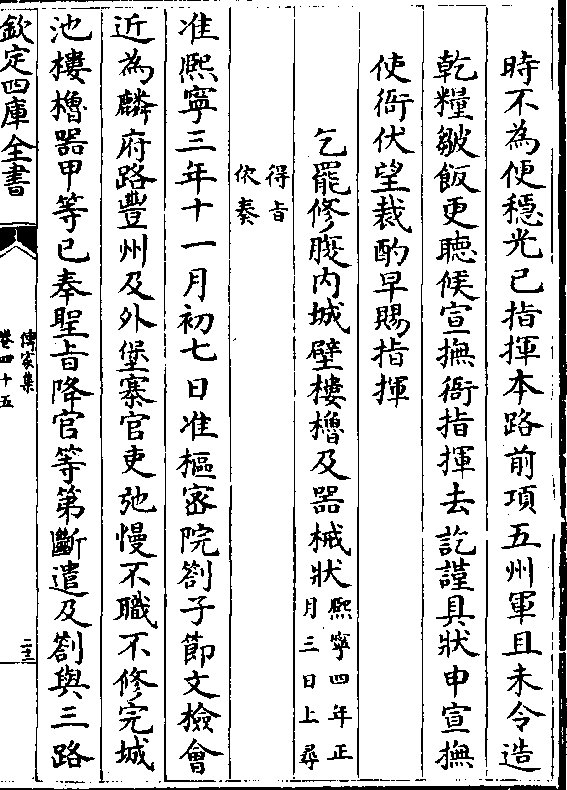 時不為便穩光已指揮本路前項五州軍且未令造
乾糧皺飯更聽候宣撫衙指揮去訖謹具狀申宣撫
使衙伏望裁酌早賜指揮
乞罷修腹內城壁樓櫓及器械狀熙寧四年正
月三日上尋
得旨
依奏
准熙寧三年十一月初七日准樞密院劄子節文檢會
近為麟府路豐州及外堡寨官吏弛慢不職不修完城
池樓櫓器甲等已奉聖旨降官等第斷遣及劄與三路
欽定四庫全書
傳家集
卷四十五
二十三